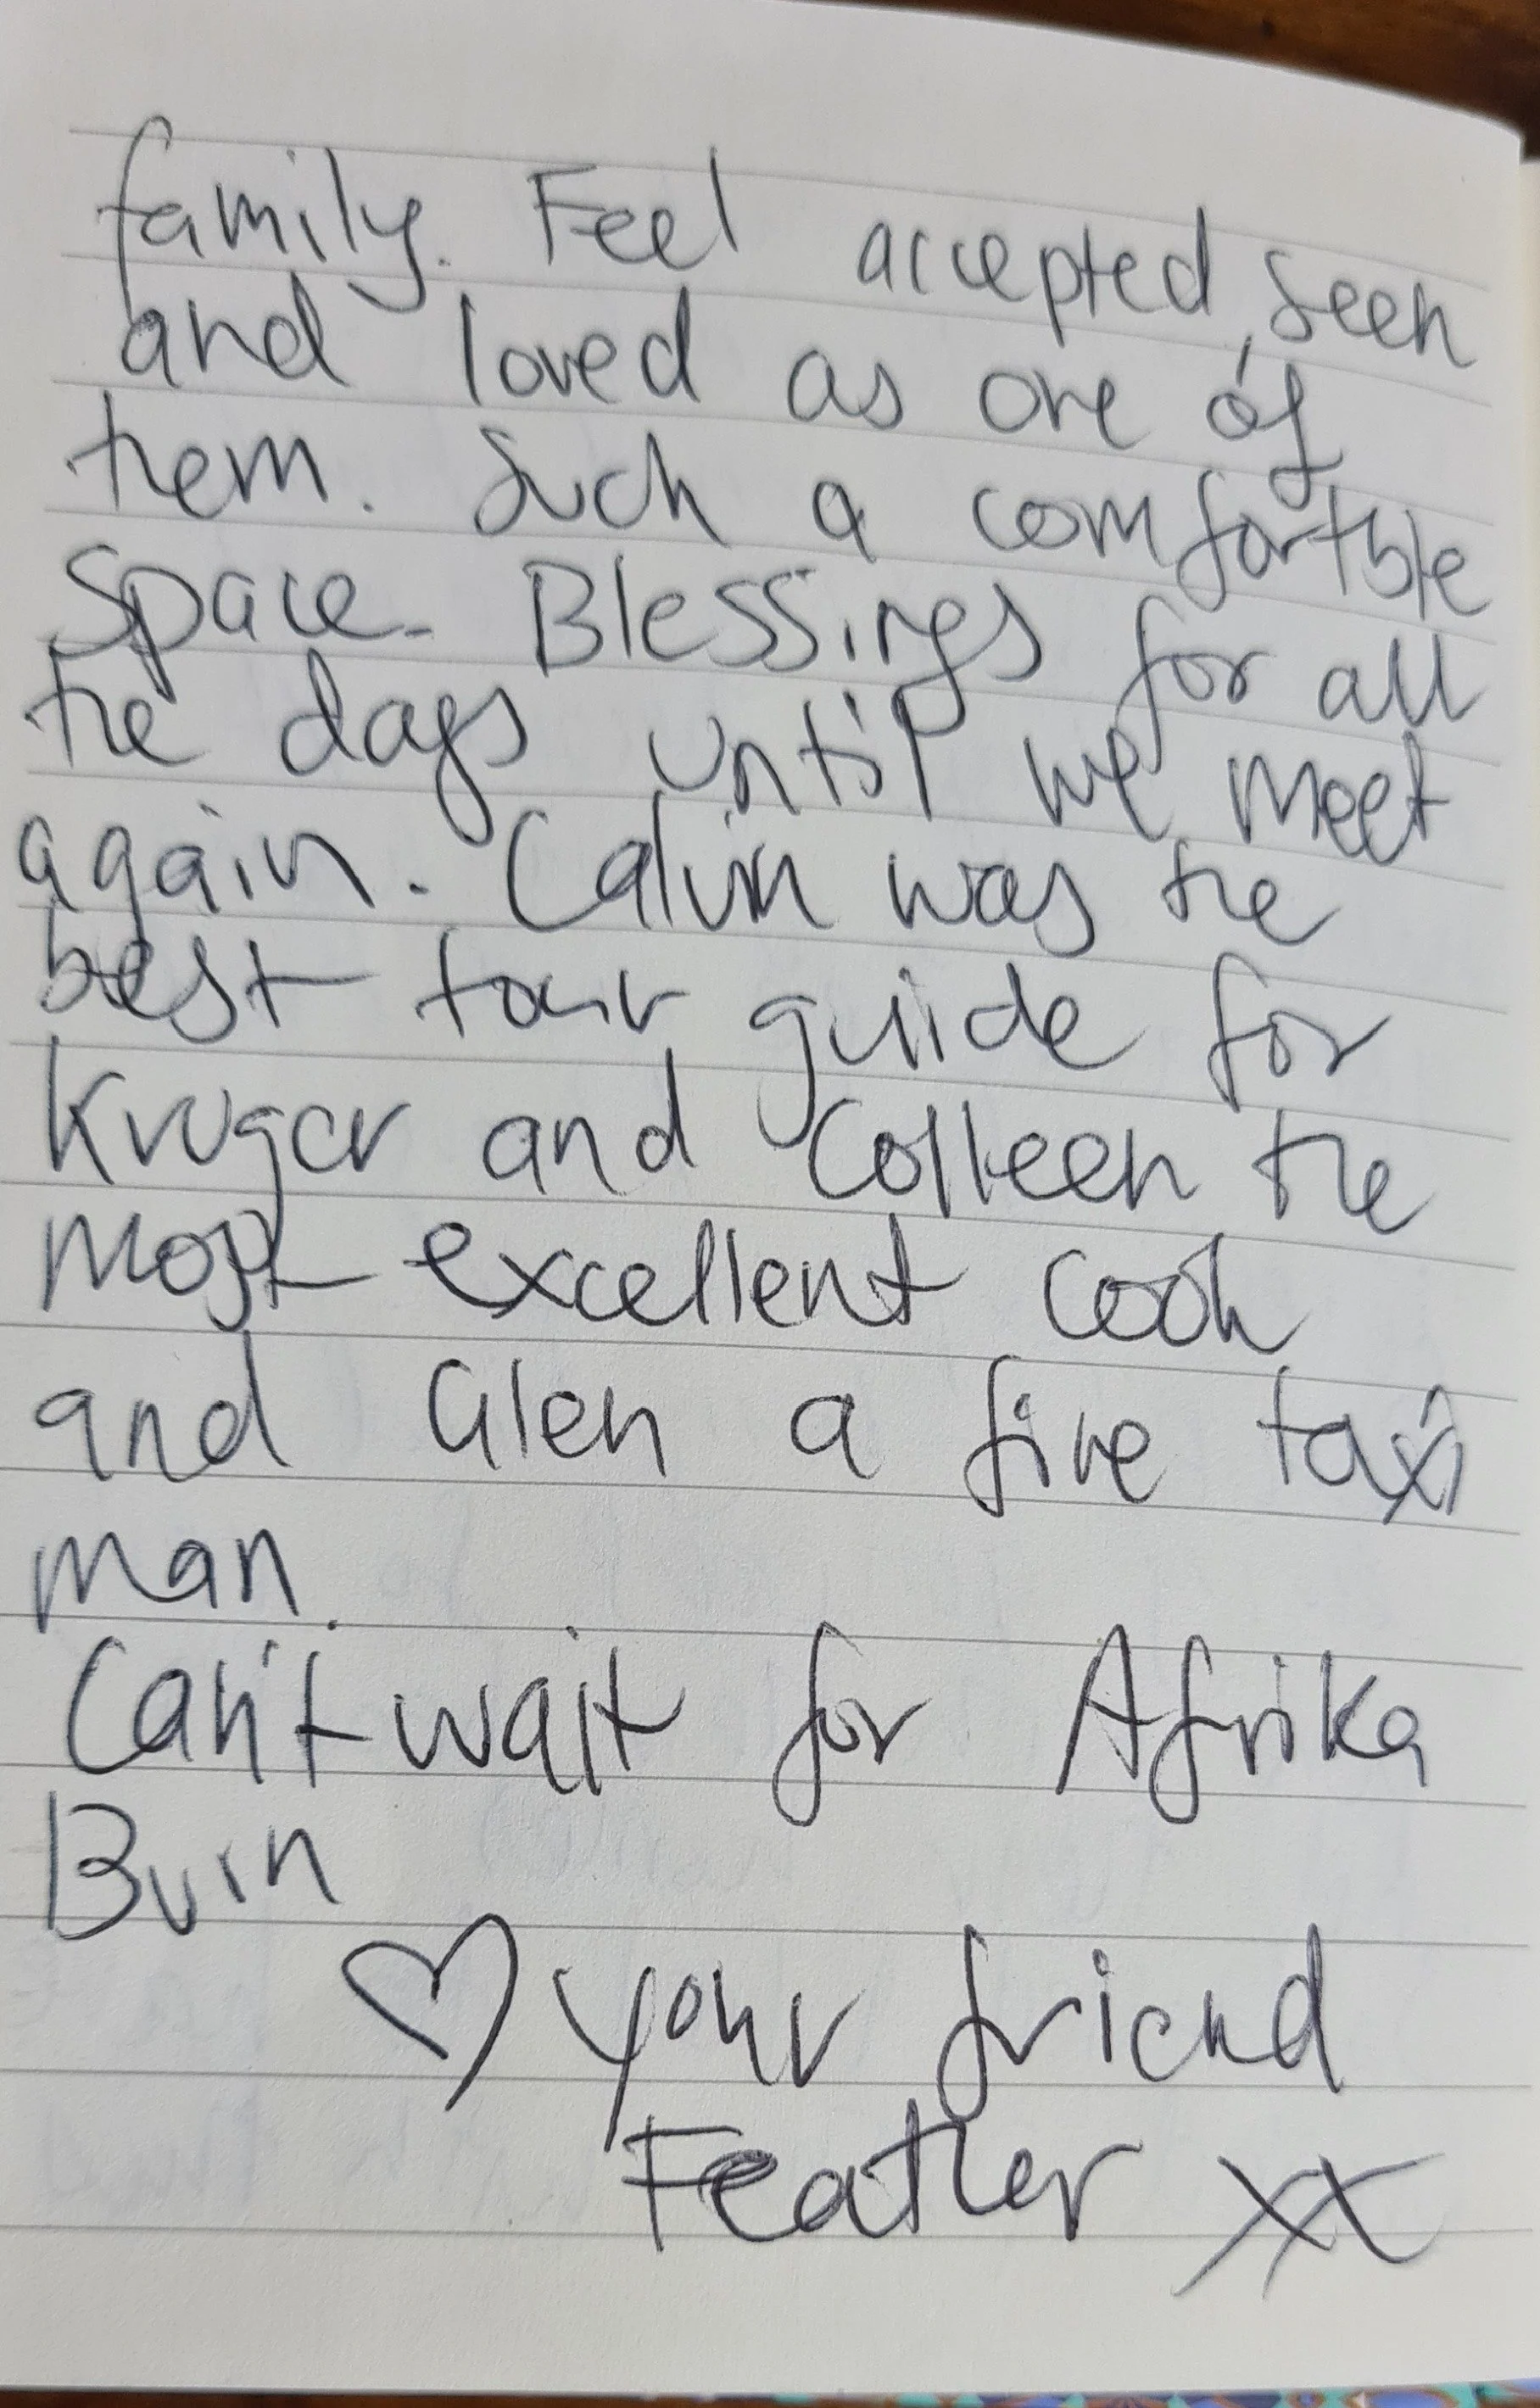 family. Feel accepted, seen
and loved as one of
them. Such a comfortble
space. Blessings for all
the days until we meet
again. Calvin was the
best tour guide for
Kruger and Colleen the
most excellent cook
and Glen a fine taxi
man.
Can't wait for Afrika
Burn
♡ your friend
Feather xx